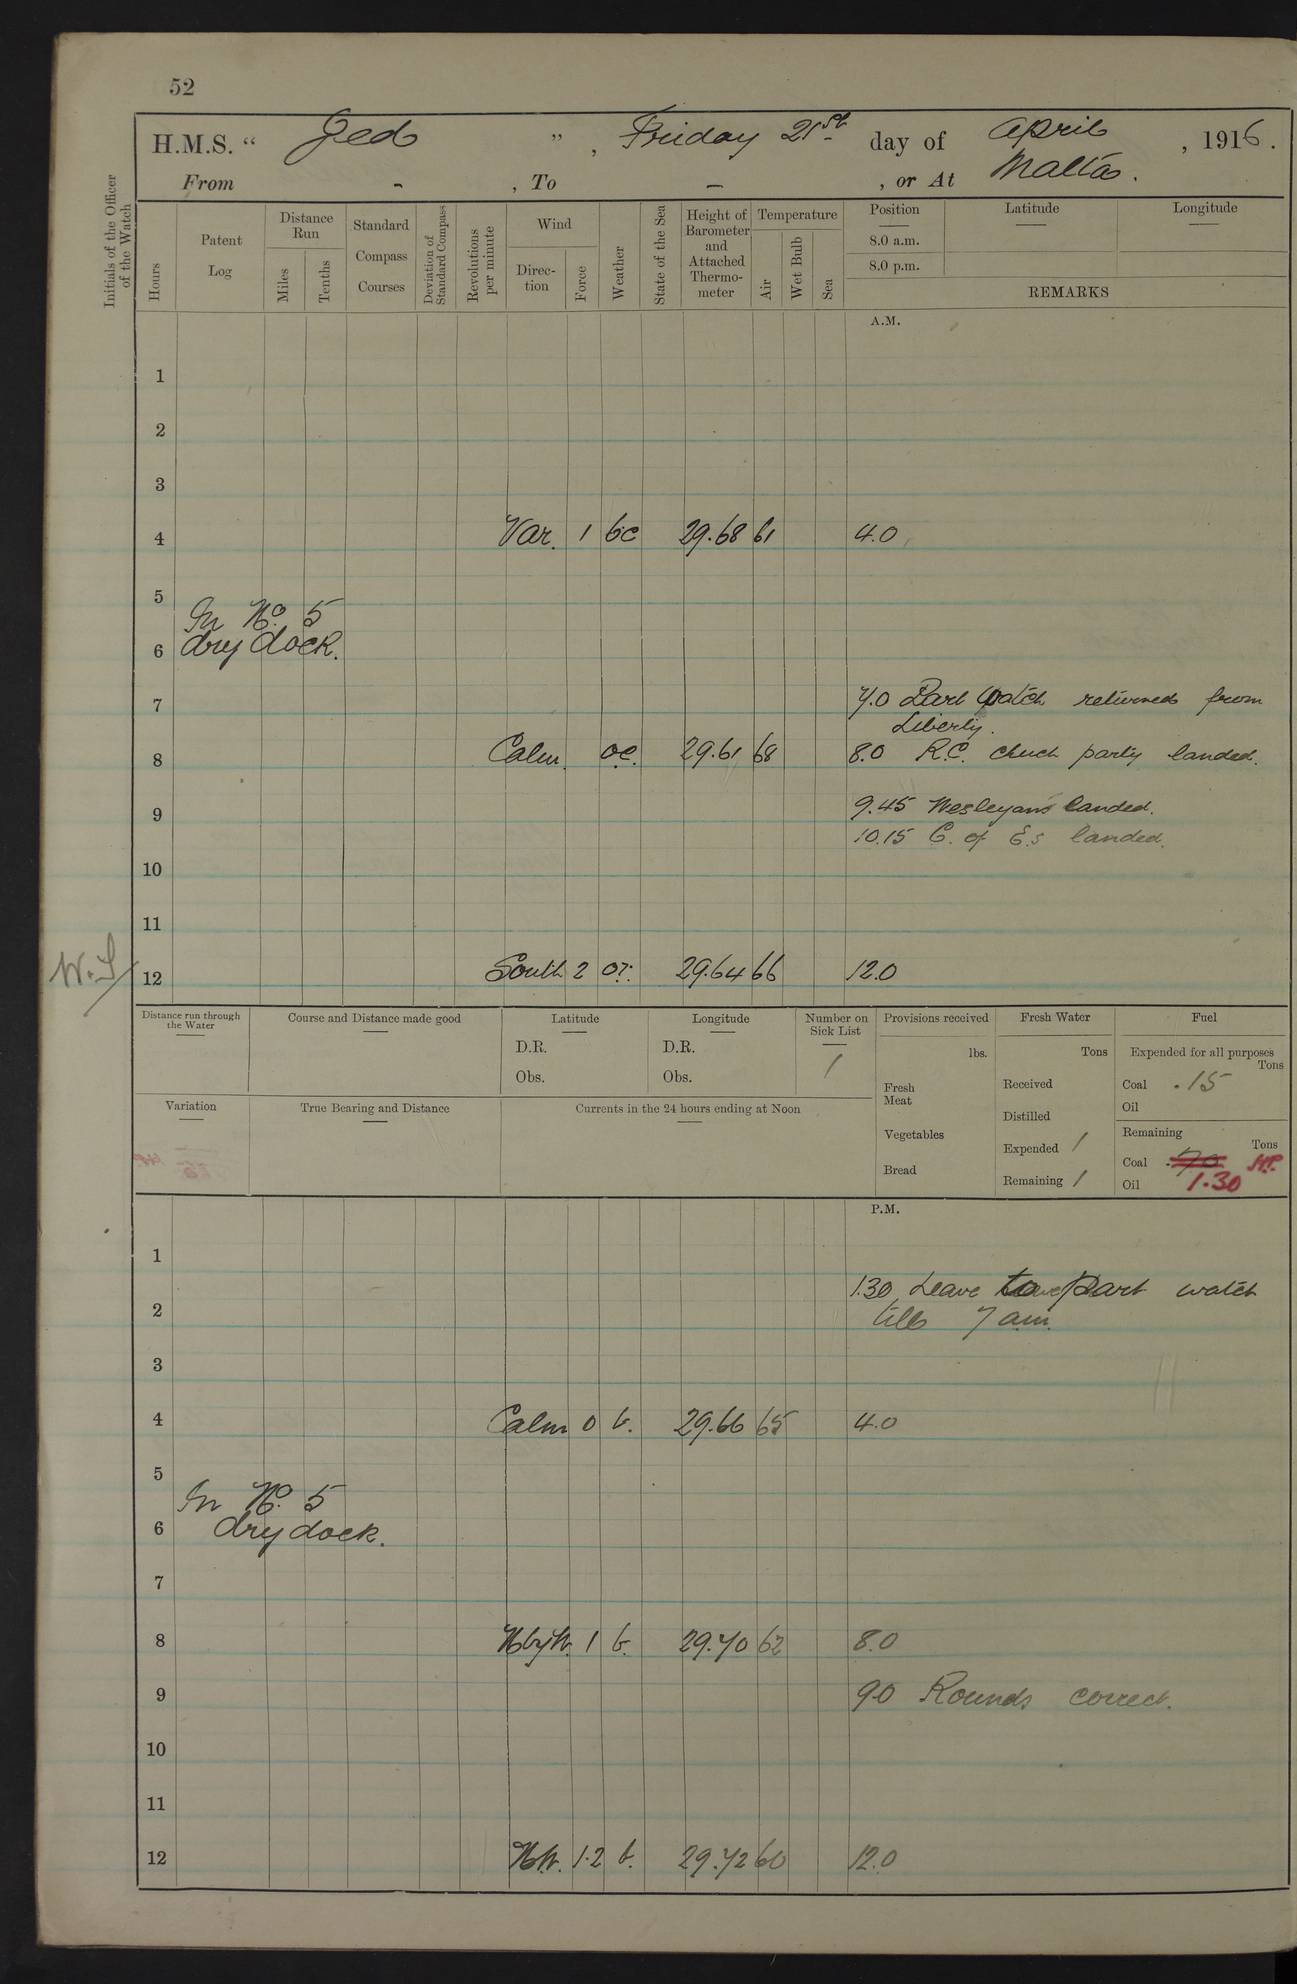 52
H.M.S. “ Jed ” , Friday 21st day of April , 1916 .
From - , To - , or At Malta .
Initials of the Officer of the Watch
Hours
Patent Log
Distance Run
Miles
Tenths
Standard Compass Courses
Deviation of Standard Compass
Revolutions per minute
Wind
Direc- tion
Force
Weather
State of the Sea
Height of Barometer and Attached Thermo- meter
Temperature
Air
Wet Bulb
Sea
Position Latitude Longitude
8.0 a.m.
8.0 p.m.
REMARKS
A.M.
1
2
3
4 Var. 1 bc 29.68 61 4.0
5
In No. 5
6 dry dock.
7 7.0 Part Watch returned from
Liberty.
8 Calm. oc. 29.61 68 8.0 R.C. chuch party landed.
9 9.45 Wesleyans landed.
10.15 C. of E.s landed.
10
11
W.S 12 South 2 or. 29.64 66 12.0
Distance run through the Water
Course and Distance made good
Latitude
D.R.
Obs.
Longitude
D.R.
Obs.
Number on Sick List
1
Provisions received
lbs.
Fresh Meat
Vegetables
Bread
Fresh Water
Tons
Received
Distilled
Expended 1
Remaining 1
Fuel
Expended for all purposes
Tons
Coal .15
Oil
Remaining
Tons
Coal .70 H.P.
Oil 1.30
Variation
True Bearing and Distance
Currents in the 24 hours ending at Noon
P.M.
1
1.30 Leave to Part watch
2 till 7 am.
3
4 Calm 0 b. 29.66 65 4.0
5
In No. 5
6 dry dock.
7
8 NbyW. 1 b. 29.70 62 8.0
9 9.0 Rounds correct.
10
11
12 NW. 1.2 b. 29.72 60 12.0